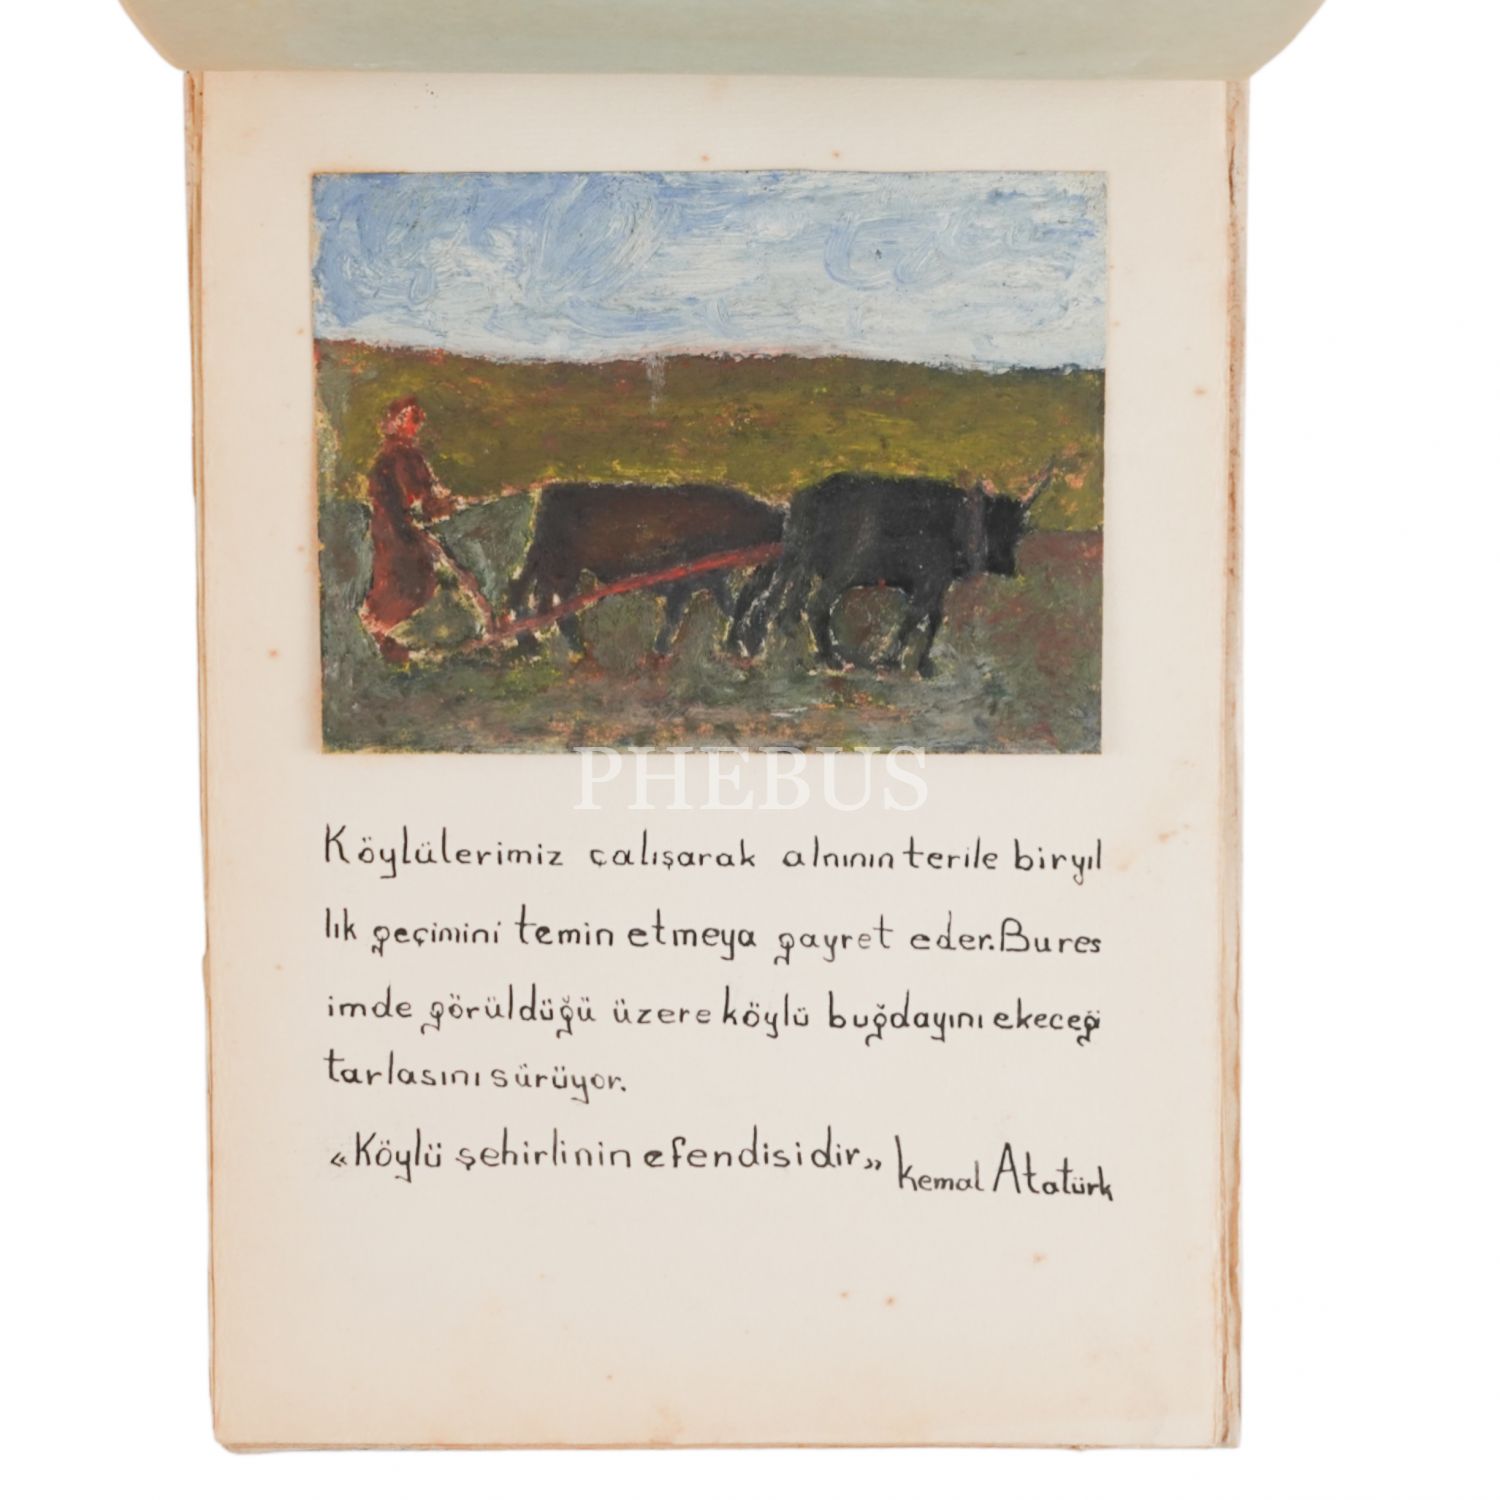 PHEBUS
Köylülerimiz çalışarak alnının terile biryıl
lık geçimini temin etmeya gayret eder. Bures
imde görüldüğü üzere köylü buğdayını ekeceği
tarlasını sürüyor.
«Köylü şehirlinin efendisidir» Kemal Atatürk